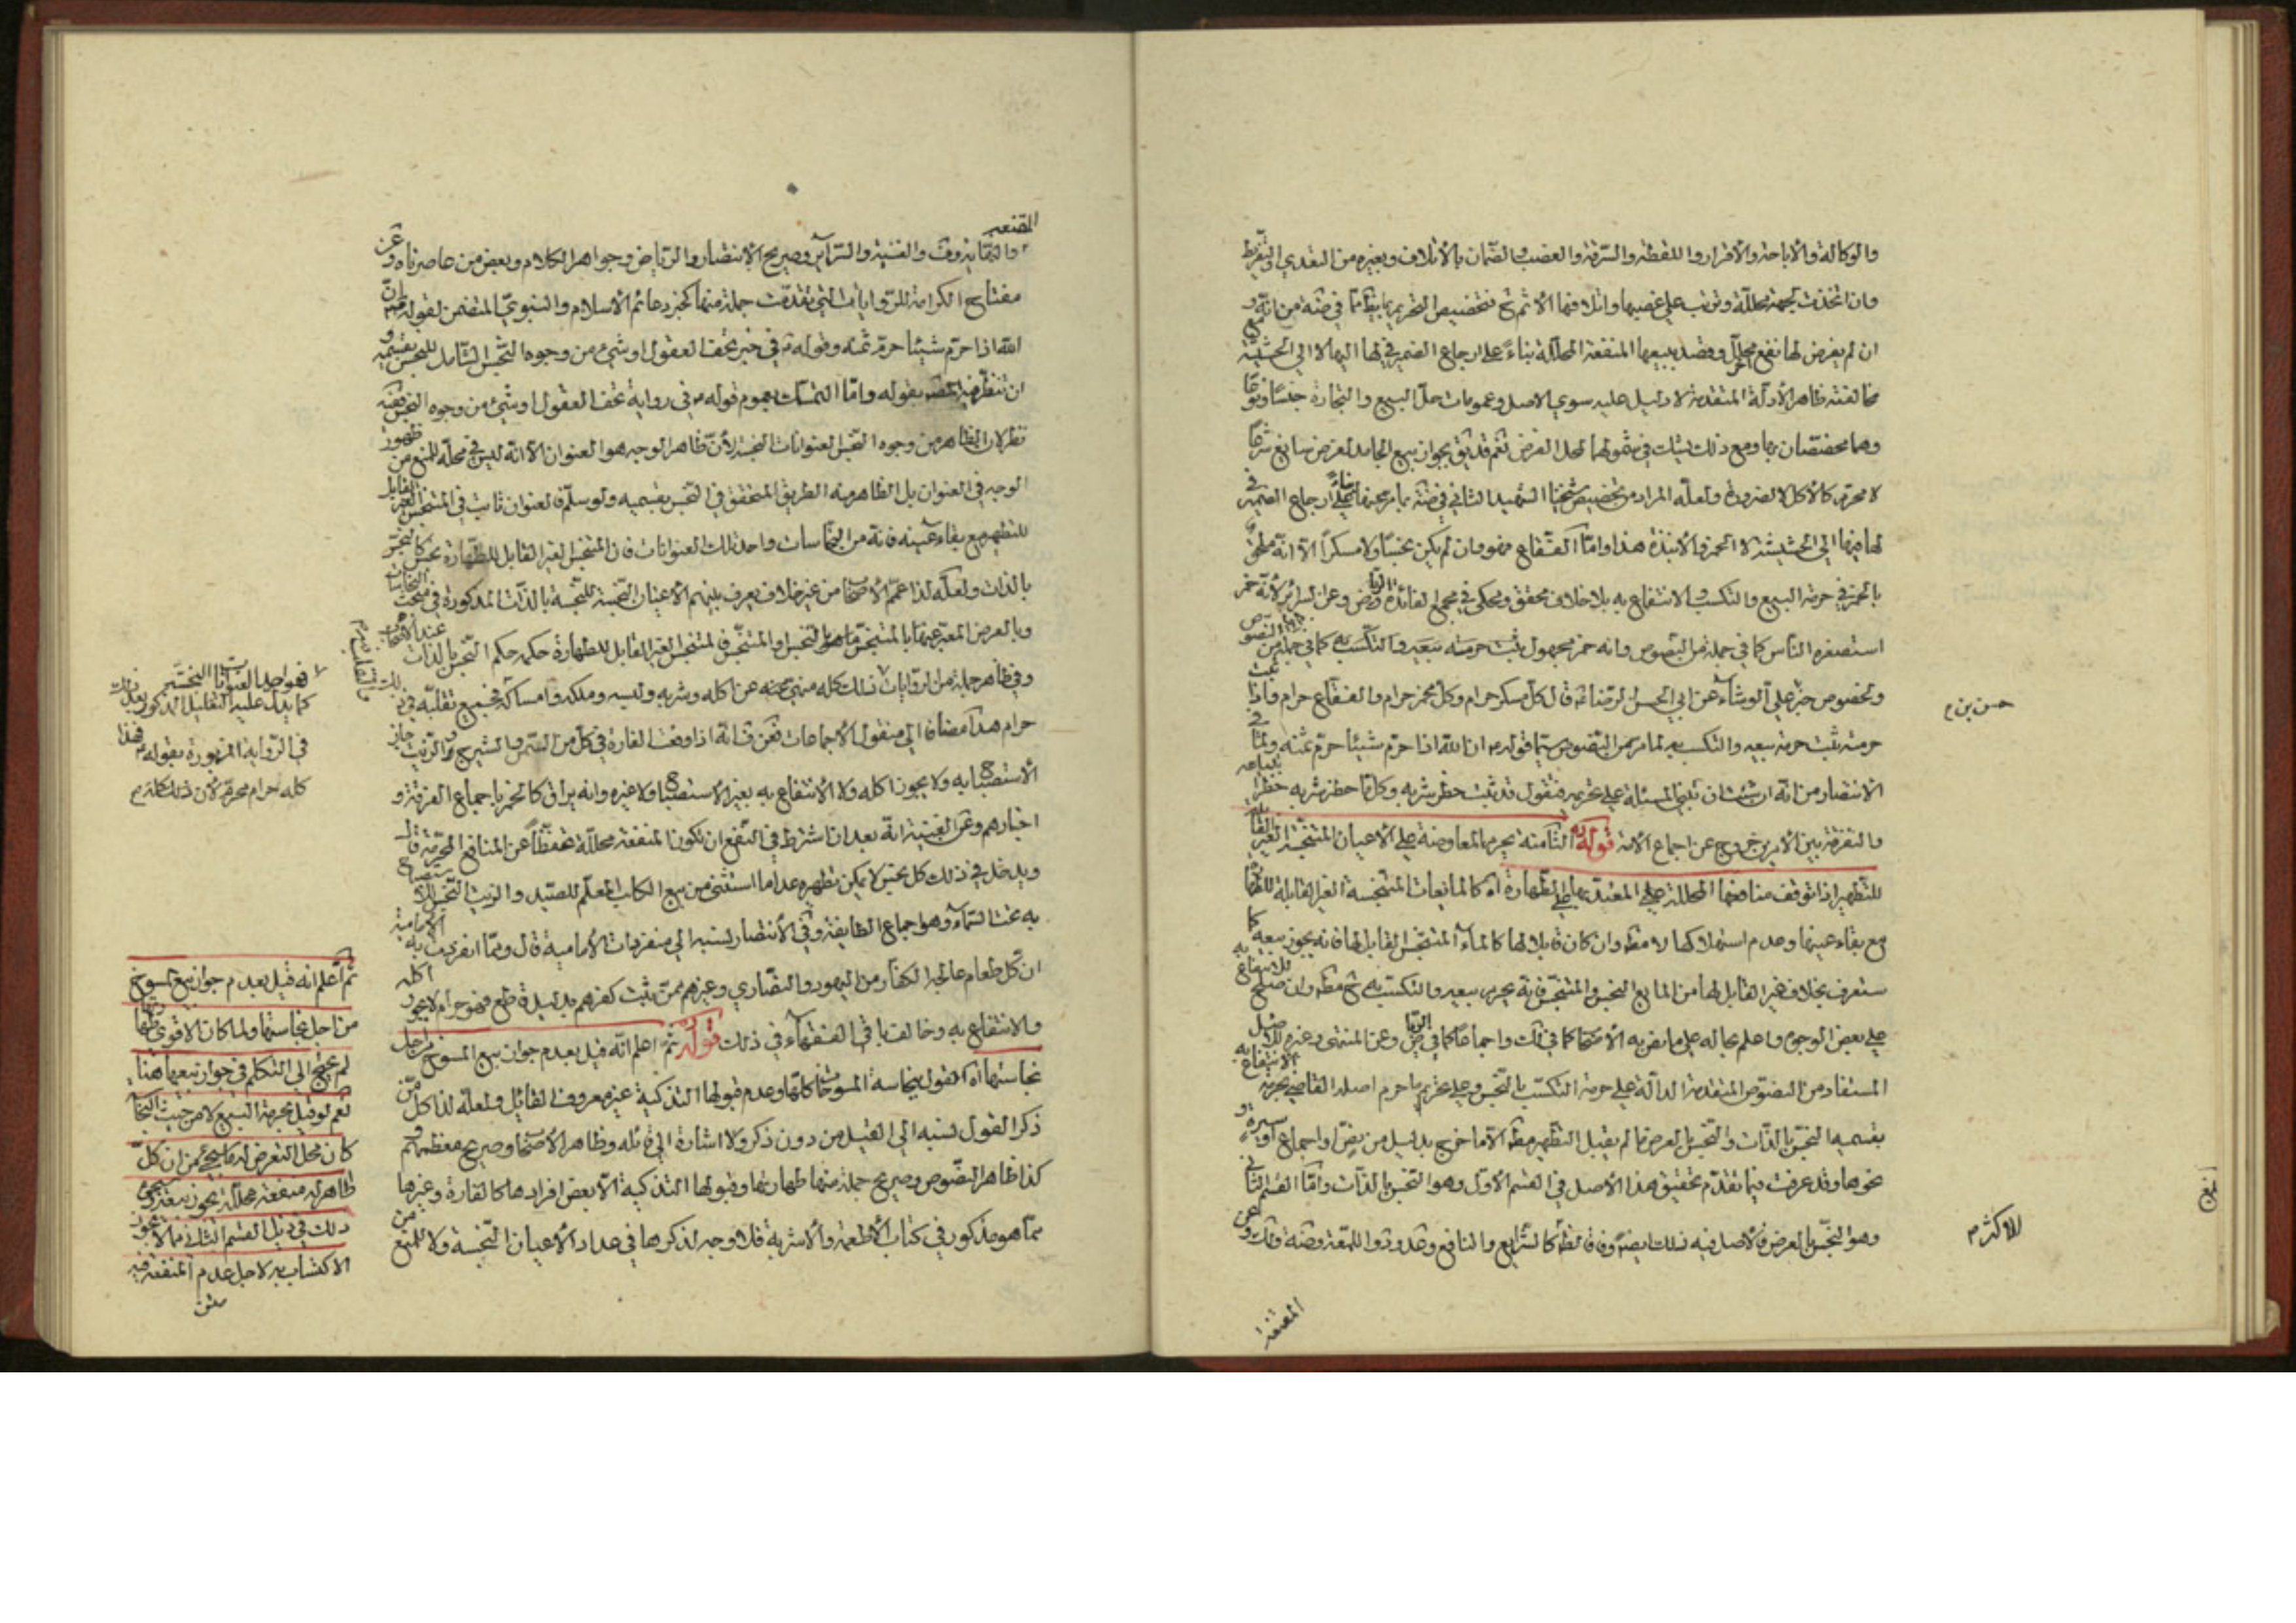 والوكالة والاباحة والاقرار واللقطة والسرقة والغصب والضمان بالاتلاف وبغيره من التعدي والتفريط
وان اتخذت لجهة محللة وترتب على غصبها واتلافها الاثم فتخصيص التحريم
ان لم يفرض لها نفع محلل وقصد ببيعها المنفعة المحللة بناء على ارجاع الضمير في لها اليها لا الى الحشيشة
مخالفته ظاهر الادلة المتقدمة لا دليل عليه سوى الاصل وعمومات حل البيع والتجارة جنسا ونوعا
وهما مخصصان بها ومع ذلك يشك في شمولهما لمحل الفرض نعم قد يتجه جواز بيع الجامد لغرض سائغ شرعا
لا محرم كالاكل لا لضرورة ولعله المراد من تخصيص شيخنا الشهيد الثاني ارجاع الضمير في
لها فيها الى الحشيشة لا الخمر والانبذة هذا واما الفقاع فهو وان لم يكن نجسا ولا مسكرا الا انه ملحق
بالخمر في حرمة البيع والتكسب والانتفاع به بلا خلاف محقق ومحكي في مجمع الفائدة وعن السرائر لانه خمر
استصغره الناس كما في جملة من النصوص وانه خمر مجهول يثبت حرمة بيعه والتكسب به كما في جملة من النصوص
وبخصوص خبر علي الوشاء عن ابي الحسن الرضا ع قال كل مسكر حرام وكل مخمر حرام والفقاع حرام فاذا ثبت
حرمته يثبت حرمة بيعه والتكسب به لما مر من النصوص سيما قوله ان الله اذا حرم شيئا حرم ثمنه ولما في
الانتصار من انه ان شئت ان تبني المسئلة على تحريمه فنقول قد ثبت حظر شربه وكل ما حظر شربه حظر ابتياعه
والتفرقة بين الامرين خروج عن اجماع الامة قوله الثامنة يحرم المعاوضة على الاعيان المتنجسة الغير القابلة
للتطهير اذا توقف منافعها المحللة المعتد بها على الطهارة اه كالمايعات المتنجسة الغير القابلة للطهارة
مع بقاء عينها وعدم استهلاكها لا مطلقا وان كان قابلا لها كالماء المتنجس القابل لها فانه يجوز بيعه كما
ستعرف بخلاف غير القابل لها من المايع النجس والمتنجس فانه يحرم بيعه والتكسب به مطلقا وان صلح للانتفاع به
على بعض الوجوه واعلم بحاله على ما نص به الاصحاب كما في لك واجماعا كما في الرياض وعن المنتهى وغيره للاصل
المستفاد من النصوص المتقدمة الدالة على حرمة التكسب بالنجس وعلى تحريم ما حرم اصله القاضي بحرمة الانتفاع به
بقسميه النجس بالذات والنجس بالعرض ما لم يقبل التطهير مطلقا الا ما خرج بدليل من نص او اجماع او سيرة
نحوها وقد عرفت فيما تقدم تحقيق هذا الاصل في القسم الاول وهو النجس بالذات واما القسم الثاني
وهو النجس بالعرض فالاصل فيه كذلك ايضا وفاقا لظاهر كالشرايع والنافع وعد واللمعة وضة ولك وعن
المقنعة
حسن بن م
للاكثر م
المقنعه
والنهاية والغنية والسرائر وصريح الانتصار والرياض وجواهر الكلام وبعض من عاصرناه وعن
مفتاح الكرامة للروايات التي تقدمت جملة منها كخبر دعائم الاسلام والنبوي المتضمن لقوله ان
الله اذا حرم شيئا حرم ثمنه وقوله في خبر تحف العقول او شيء من وجوه النجس الشامل للنجس بقسميه
ان تنظر فيه المصنف بقوله واما التمسك بعموم قوله في رواية تحف العقول او شيء من وجوه النجس ففيه
نظر لان الظاهر من وجوه النجس العنوانات النجسة لان ظاهر الوجه هو العنوان الا انه ليس في محله للمنع من ظهور
الوجه في العنوان بل الظاهر منه الطريق المتحقق في النجس بقسميه ولو سلم فالعنوان ثابت في المتنجس الغير القابل
للتطهير مع بقاء عينه فانه من النجاسات واحد تلك العنوانات فان المتنجس الغير القابل للطهارة نجس كالنجس
بالذات ولعله لذا عمم الاصحاب من غير خلاف يعرف بينهم الاعيان النجسة للنجسة بالذات المذكورة في مبحث النجاسات
وبالعرض المعبر عنها بالمتنجس والمتنجس الغير القابل للطهارة حكمه حكم النجس بالذات عند الاصحاب
وفي ظاهر جملة من الروايات فذلك كله منهي عنه عن اكله وشربه ولبسه وملكه وامساكه فجميع تقلبه في ذلك
حرام هذا مضافا الى منقول الاجماعات فعن انه اذا وقعت الفارة في كل من السمن والشيرج والزيت جاز
الاستصباح به ولا يجوز اكله ولا الانتفاع به بغير الاستصباح ولا غيره وانه يراق كالخمر باجماع الفرقة و
اخبارهم وعن الغنية انه بعد ان اشترط في النفع ان تكون المنفعة محللة تحفظا عن المنافع المحرمة قال
ويدخل في ذلك كل نجس لا يمكن تطهيره عدا ما استثني من بيع الكلب المعلم للصيد والزيت النجس للاستصباح
به تحت السماء وهو اجماع الطايفة وفي الانتصار نسبه الى منفردات الامامية قال ومما انفردت به الامامية
ان كل طعام عالجه الكفار من اليهود والنصارى وغيرهم ممن يثبت كفرهم بدليل قاطع فهو حرام لا يجوز اكله
والانتفاع به وخالف باقي الفقهاء في ذلك قوله ثم اعلم انه قيل بعدم جواز بيع المسوخ من اجل
نجاستها اه القول بنجاسة المسوخات كلها وعدم قبولها التذكية غير معروف القائل ولعله لذا كل من
ذكر القول نسبه الى القيل من دون ذكر ولا اشارة الى قائله وظاهر الاصحاب وصريح معظمهم
كذا ظاهر النصوص وصريح جملة منها طهارتها وقبولها التذكية الا بعض افرادها كالفارة وغيرها
مما هو مذكور في كتاب الاطعمة والاشربة فلا وجه لذكرها في عداد الاعيان النجسة ولا للمنع من
فهو احد العنوانات النجسة
كما يدل عليه التعليل المذكور بعد ذلك
في الرواية المزبورة بقوله فهذا
كله حرام محرم لان ذلك كله م
ثم اعلم انه قيل بعدم جواز بيع المسوخ
من اجل نجاستها ولما كان الاقوى طهارتها
لم نحتج الى التكلم في جواز بيعها هنا
نعم لو قيل بحرمة البيع لا من حيث النجاسة
كان محل التعرض له ما سيجيء من ان كل
طاهر له منفعة محللة يجوز بيعه وسيجيء
ذلك في ذيل القسم الثاني مما لا يجوز
الاكتساب به لاجل عدم المنفعة فيه
متن